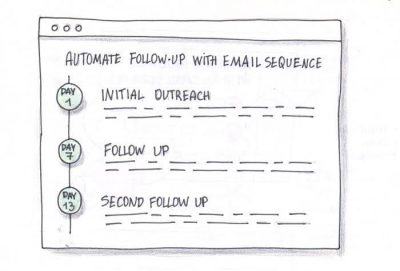 AUTOMATE FOLLOW-UP WITH EMAIL SEQUENCE
DAY
1
INITIAL OUTREACH
DAY
7
FOLLOW UP
DAY
13
SECOND FOLLOW UP